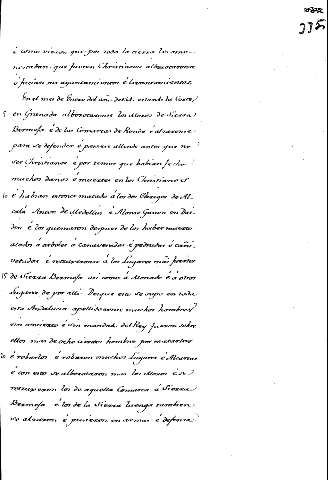 é como vieron que por toda la tierra los amo-
nestaban que fuesen Christianos alborotaronse
é facian sus ayuntamientos é levantamientos.
En el mes de Enero del año de estando las
5 en Granada alborotaronse los Moros de Sierra
Bermeja é de las Comarcas de Ronda é alzaronse
para se defender é pasarse allende antes que no
ser Christianos é por temor que habian fecho
muchos daños é muertes en los Christianos
10 é habian entonces matado á los dos Clerigos de
calá Anton de Medellin é Alonso Gascon en
é los quemaron despues de los haber muerto
atados á arboles é cañavereados é pedradas é
é retraxeronse á los Lugares mas fuertes
15 de Sierra Bermeja asi como á Monarda é á otros
Lugares de por alli. Desque esto se supo en toda
esta Andalucia apellidaronse muchos hombres
sin concierto é sin mandado del Rey fueron sobre
ellos mas de ochocientos hombres por matarlos
20 é robarlos é robaron muchos Lugares é Alcarias
é con esto se alborotaron mas los Moros é se
retraxeron los de aquella Comarca á Sierra
Bermeja é los de la Sierra luenga tambien
se alzaron é pusieron en armas é defensa